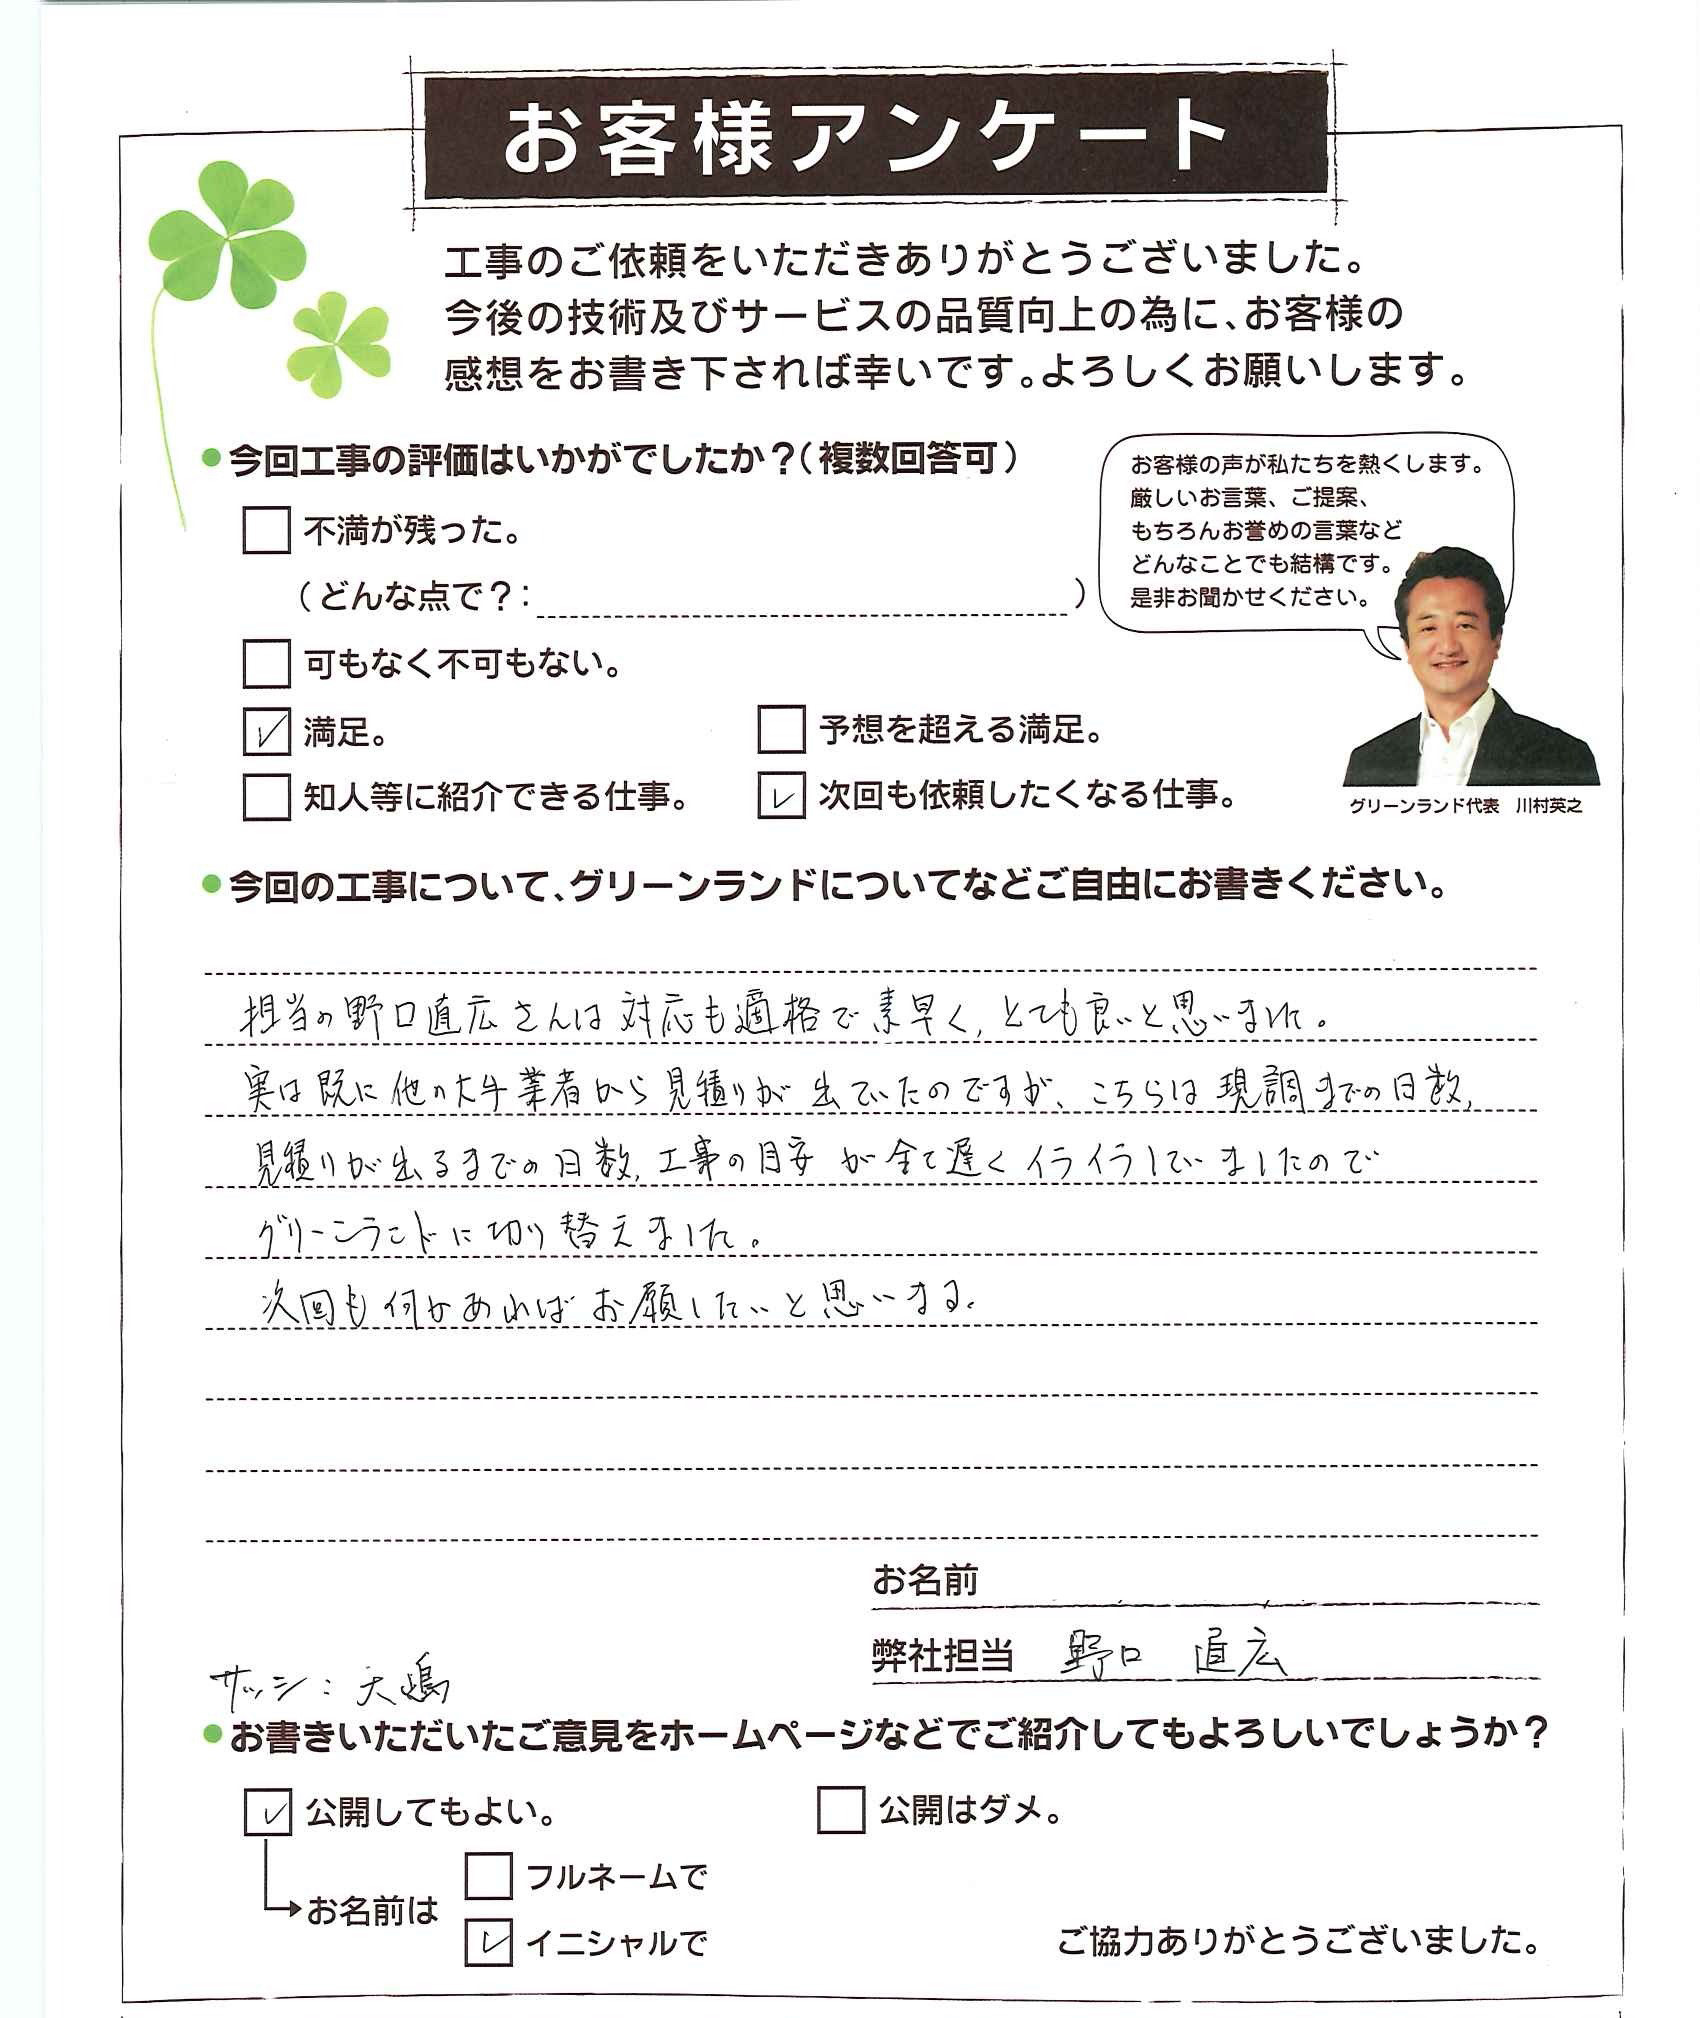 お客様アンケート
工事のご依頼をいただきありがとうございました。
今後の技術及びサービスの品質向上の為に、お客様の
感想をお書き下されば幸いです。よろしくお願いします。
●今回工事の評価はいかがでしたか？(複数回答可)
不満が残った。
(どんな点で？: )
可もなく不可もない。
満足。
予想を超える満足。
知人等に紹介できる仕事。
次回も依頼したくなる仕事。
お客様の声が私たちを熱くします。
厳しいお言葉、ご提案、
もちろんお誉めの言葉など
どんなことでも結構です。
是非お聞かせください。
グリーンランド代表 川村英之
●今回の工事について、グリーンランドについてなどご自由にお書きください。
担当の野口直広さんは対応も適格で素早く,とても良いと思いました。
実は既に他の大手業者から見積りが出ていたのですが、こちらは現調までの日数,
見積りが出るまでの日数,工事の目安が全て遅くイライラしていましたので
グリーンランドに切り替えました。
次回も何かあればお願したいと思います。
お名前
弊社担当 野口 直広
サッシ:大嶋
●お書きいただいたご意見をホームページなどでご紹介してもよろしいでしょうか？
公開してもよい。
公開はダメ。
お名前は
フルネームで
イニシャルで
ご協力ありがとうございました。